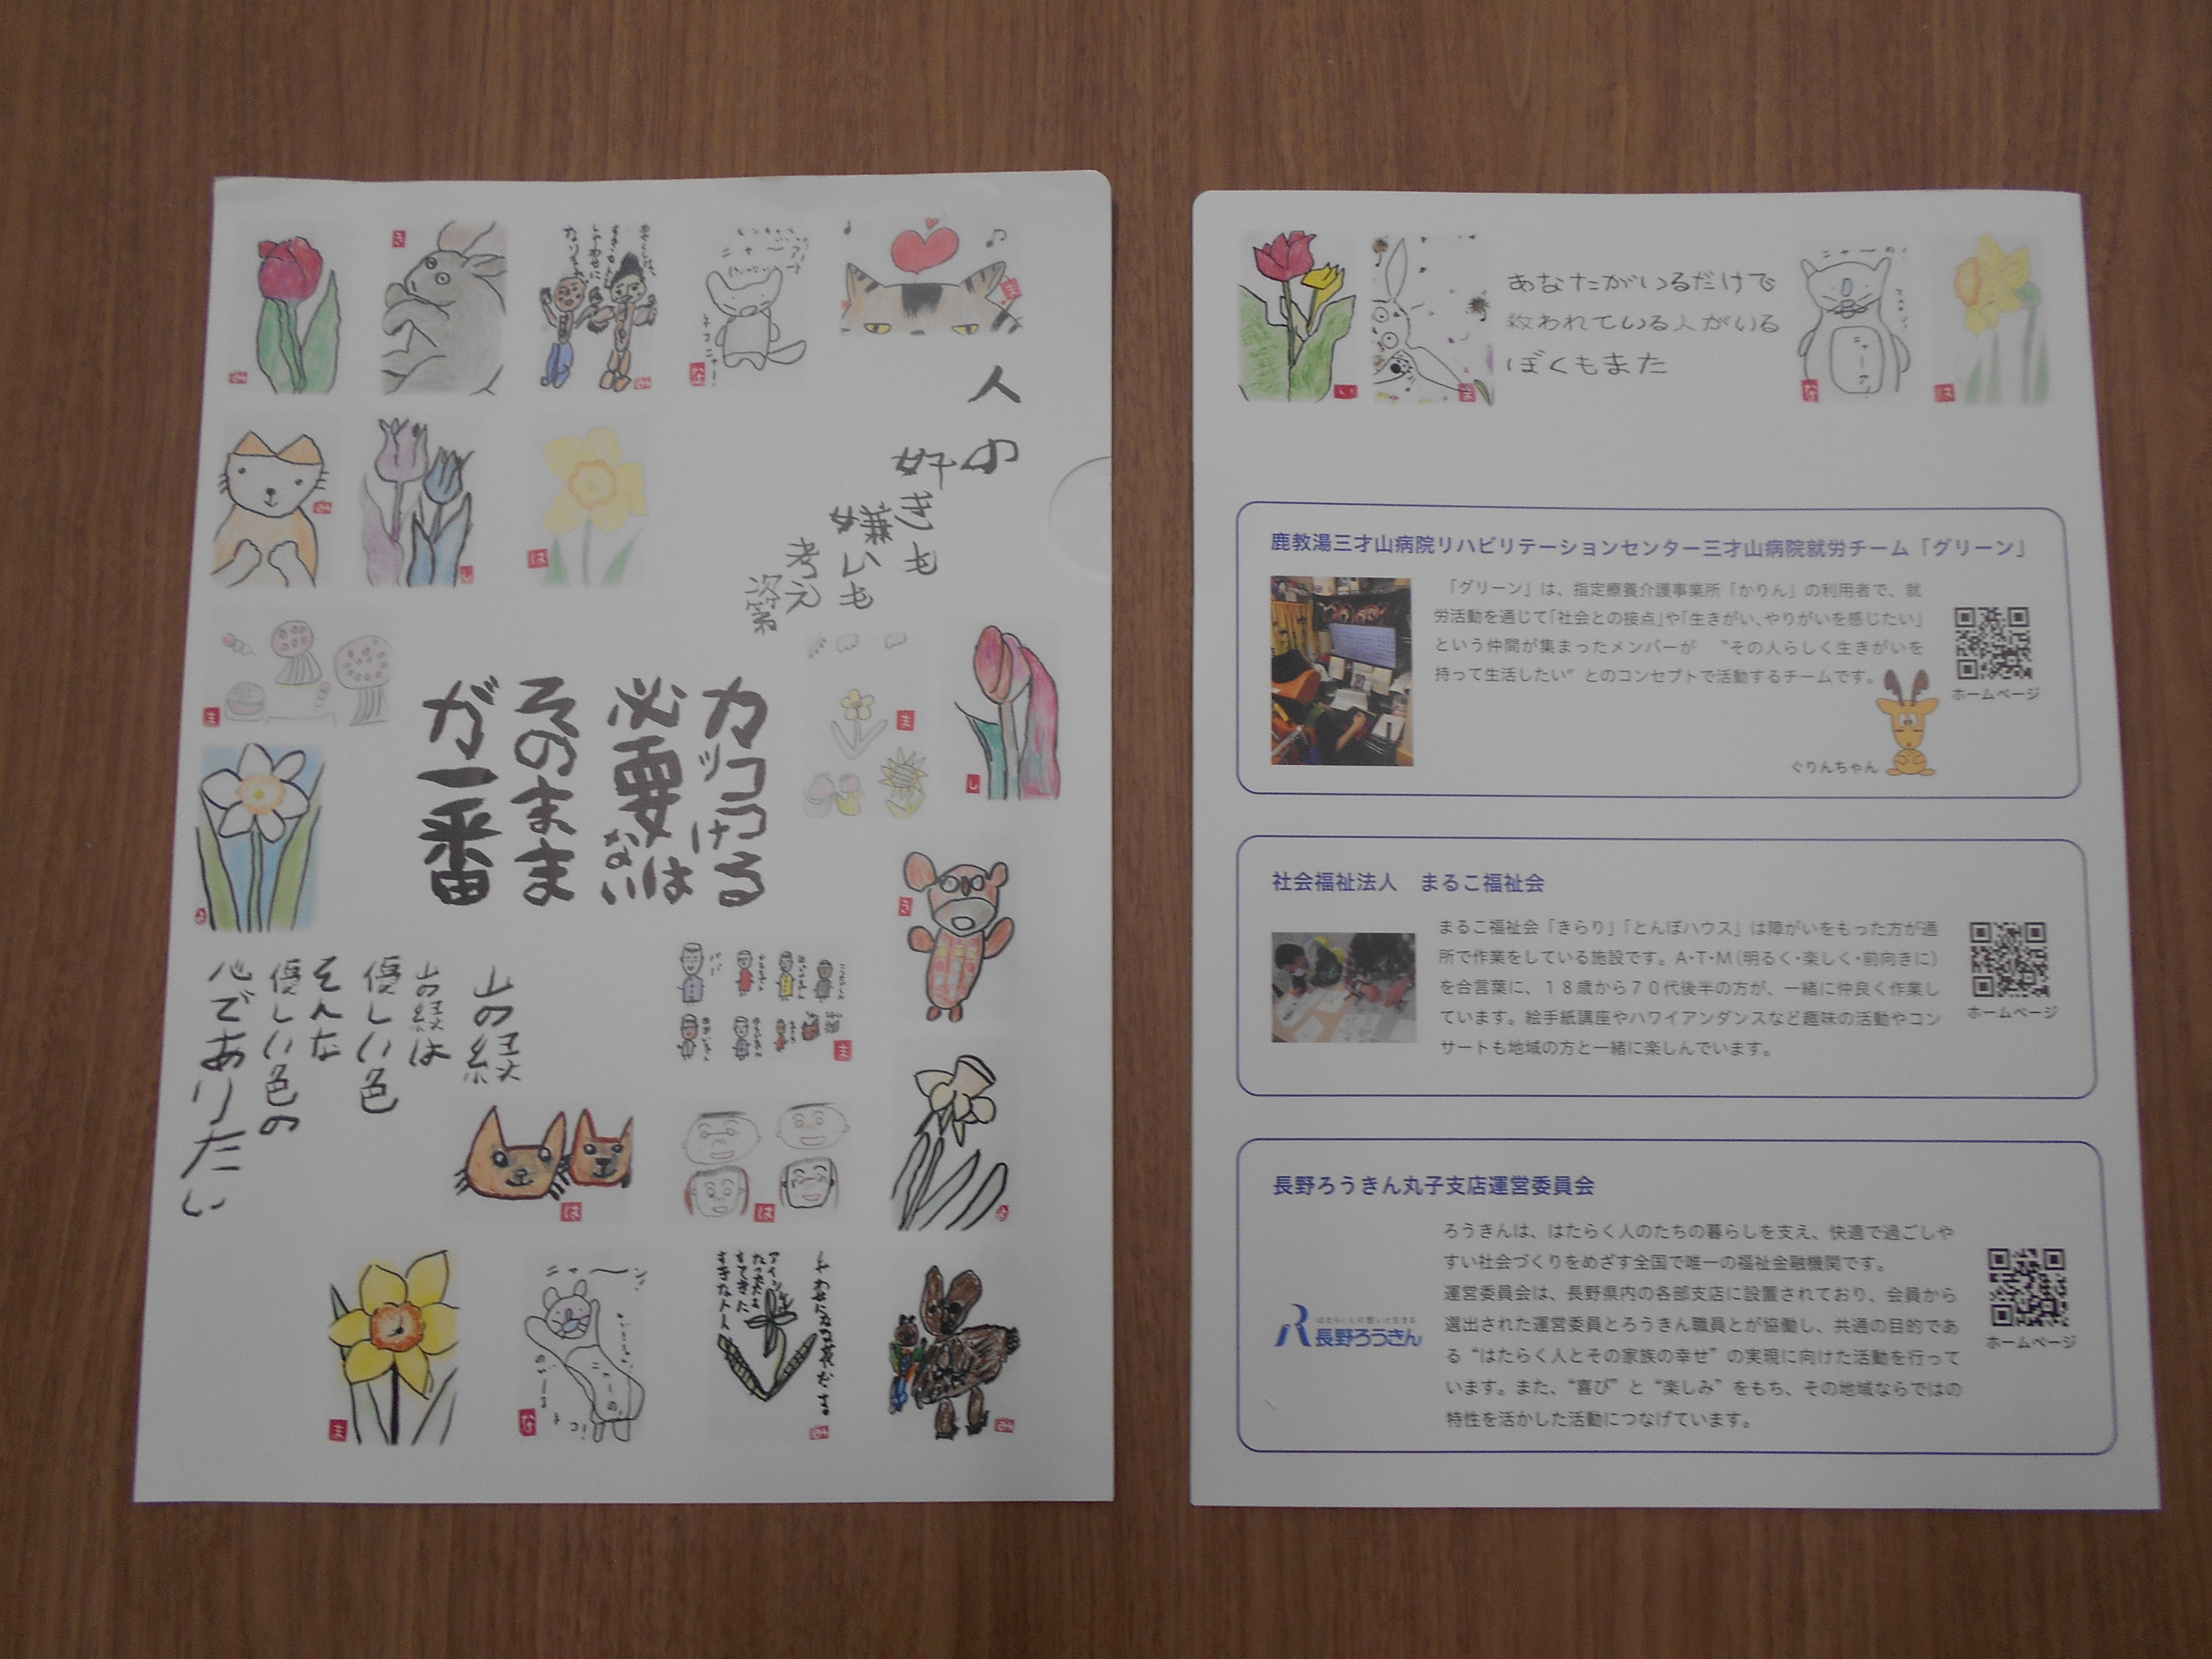 人の
好きも
嫌いも
考え
次第
カッコつける
必要はない
そのまま
が一番
山の緑
山の緑は
優しい色
そんな
優しい色の
心でありたい
ニャーン!
あなたがいるだけで
救われている人がいる
ぼくもまた
鹿教湯三才山病院リハビリテーションセンター三才山病院就労チーム「グリーン」
「グリーン」は、指定療養介護事業所「かりん」の利用者で、就
労活動を通じて「社会との接点」や「生きがい、やりがいを感じたい」
という仲間が集まったメンバーが “その人らしく生きがいを
持って生活したい” とのコンセプトで活動するチームです。
ホームページ
ぐりんちゃん
社会福祉法人 まるこ福祉会
まるこ福祉会「きらり」「とんぼハウス」は障がいをもった方が通
所で作業をしている施設です。A・T・M（明るく・楽しく・前向きに）
を合言葉に、１８歳から７０代後半の方が、一緒に仲良く作業し
ています。絵手紙講座やハワイアンダンスなど趣味の活動やコン
サートも地域の方と一緒に楽しんでいます。
ホームページ
長野ろうきん丸子支店運営委員会
ろうきんは、はたらく人のたちの暮らしを支え、快適で過ごしや
すい社会づくりをめざす全国で唯一の福祉金融機関です。
運営委員会は、長野県内の各部支店に設置されており、会員から
選出された運営委員とろうきん職員とが協働し、共通の目的であ
る “はたらく人とその家族の幸せ” の実現に向けた活動を行って
います。また、“喜び” と “楽しみ” をもち、その地域ならではの
特性を活かした活動につなげています。
長野ろうきん
ホームページ